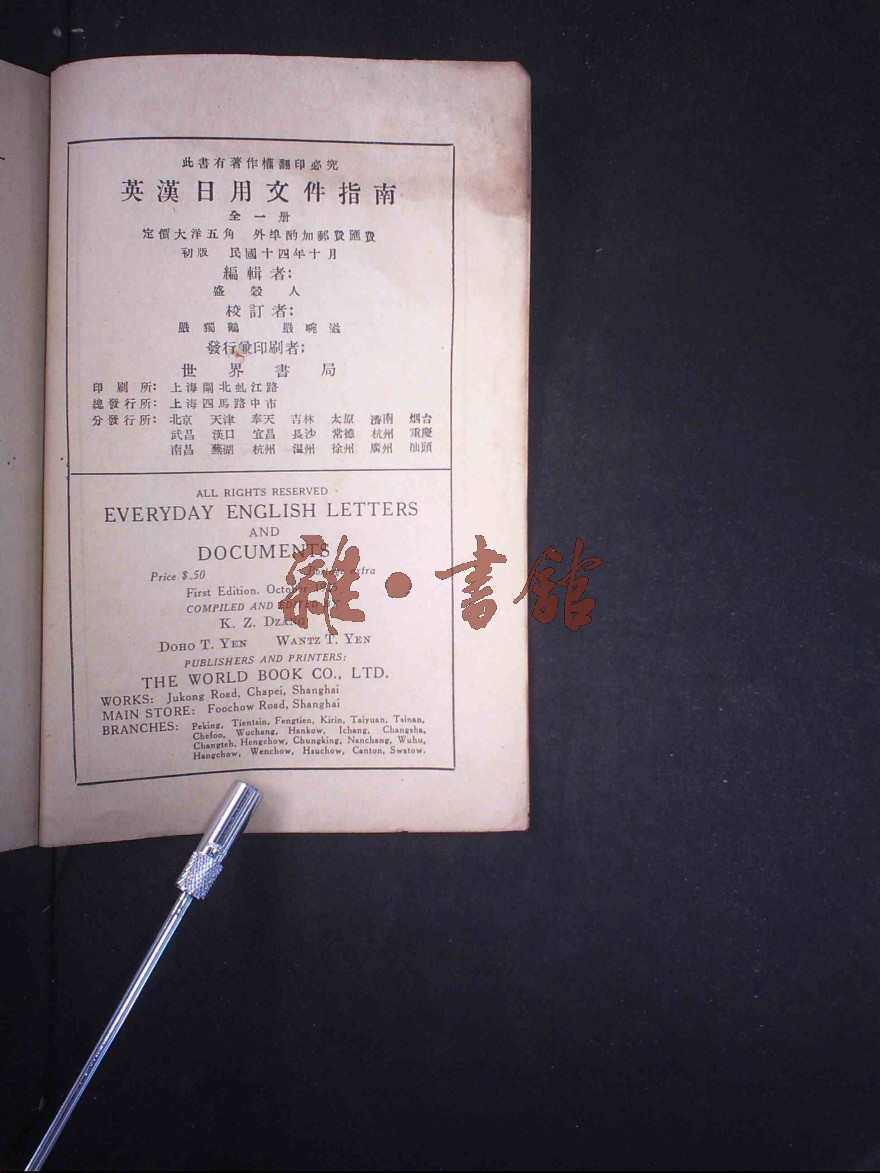 此書有著作權翻印必究
英漢日用文件指南
全一册
定價大洋五角 外埠酌加郵費匯費
初版 民國十四年十月
編輯者:
盛穀人
校訂者:
嚴獨鶴 嚴畹滋
發行兼印刷者:
世界書局
印刷所: 上海閘北虬江路
總發行所: 上海四馬路中市
分發行所: 北京 天津 奉天 吉林 太原 濟南 烟台
武昌 漢口 宜昌 長沙 常德 杭州 重慶
南昌 蕪湖 杭州 温州 徐州 廣州 汕頭
ALL RIGHTS RESERVED
EVERYDAY ENGLISH LETTERS
AND
DOCUMENTS
Price $.50 Postage extra
First Edition. October
COMPILED AND EDITED BY
K. Z. DZANG
DOHO T. YEN WANTZ T. YEN
PUBLISHERS AND PRINTERS:
THE WORLD BOOK CO., LTD.
WORKS: Jukong Road, Chapei, Shanghai
MAIN STORE: Foochow Road, Shanghai
BRANCHES: Peking, Tientsin, Fengtien, Kirin, Taiyuan, Tsinan,
Chefoo, Wuchang, Hankow, Ichang, Changsha,
Changteh, Hengchow, Chungking, Nanchang, Wuhu,
Hangchow, Wenchow, Hsuchow, Canton, Swatow.
雜·書館